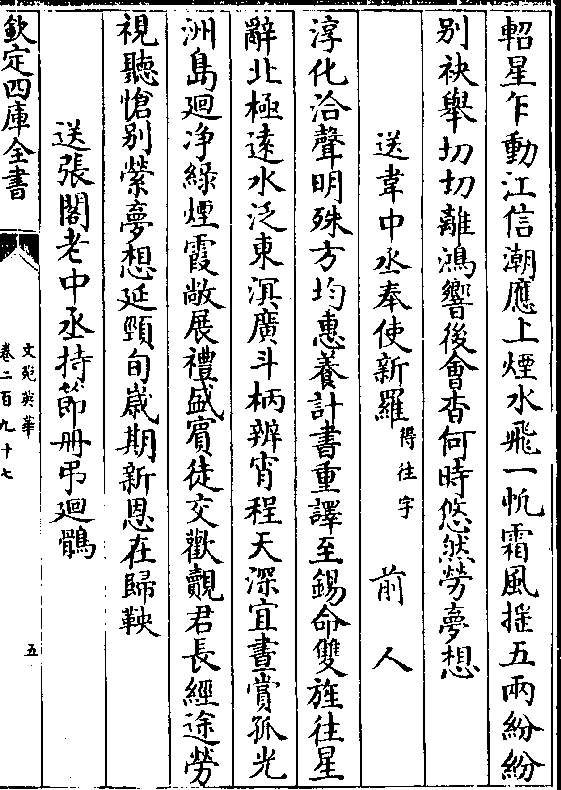 軺星乍動江信潮應上煙水飛一帆霜風搖五兩紛紛
别袂舉切切離鴻響後會杳何時悠然勞夢想
送韋中丞奉使新羅得往字 前人
淳化洽聲明殊方均惠養計書重譯至錫命雙旌往星
辭北極逺水泛東溟廣斗柄辨宵程天深宜晝賞孤光
洲島迴净綠煙霞敞展禮盛賓徒交歡覿君長經途勞
視聽愴别縈夢想延頸旬歲期新恩在歸鞅
送張閣老中丞持節冊弔迴鶻
欽定四庫全書
文苑英華
卷二百九十七
五